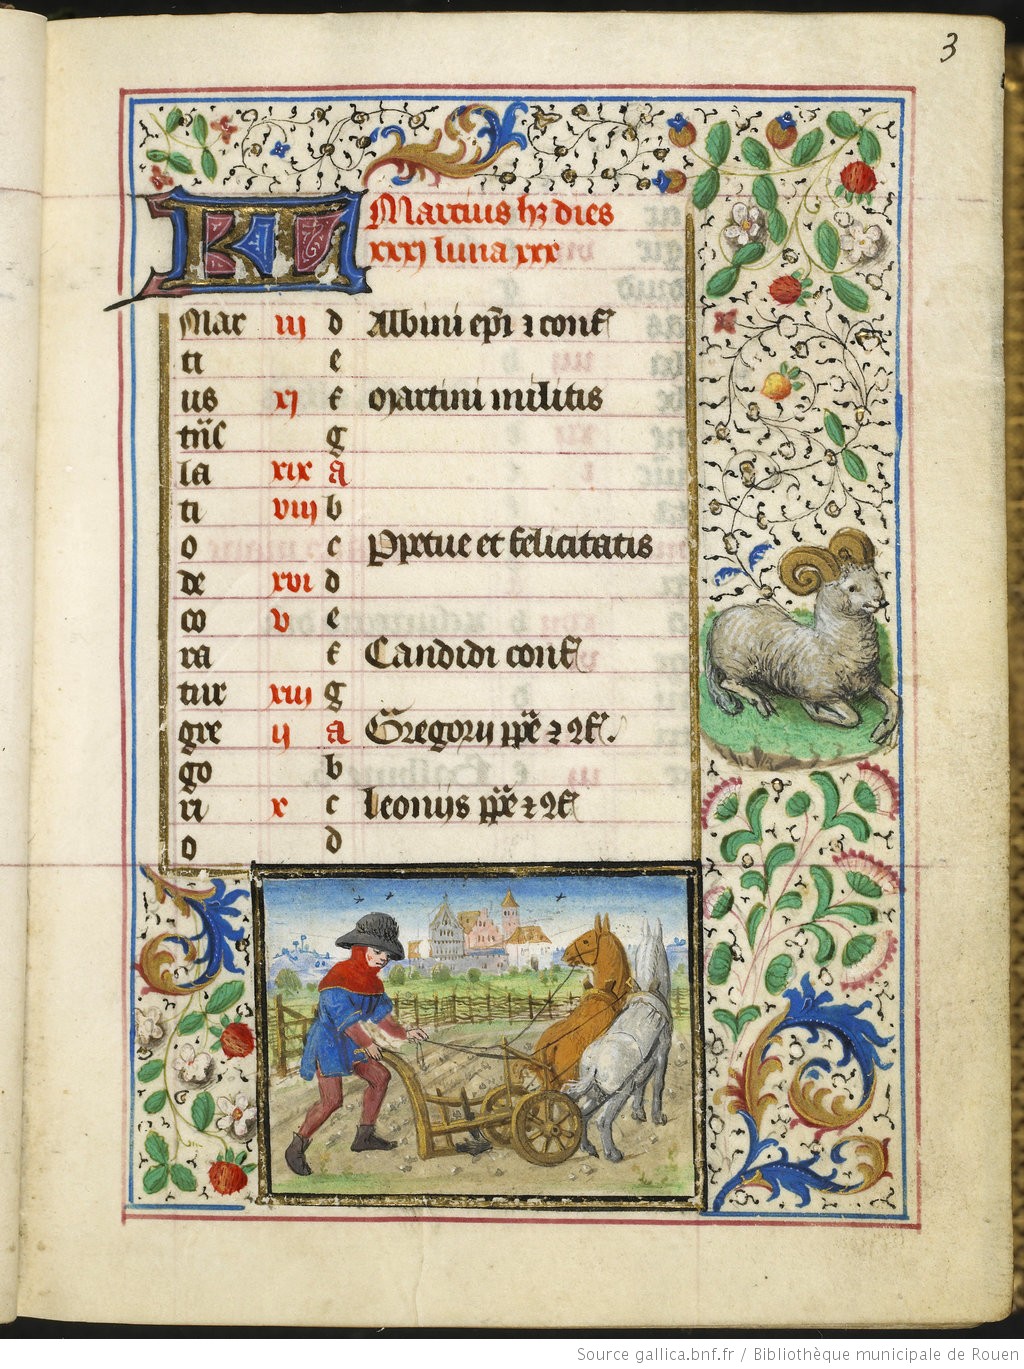 3
KL Marcius hꝫ dies
xxxj luna xxx
Mar iij d Albini ep̃i ⁊ conf̃
ti e
us xj f Martini militis
tũc g
la xix a
ti viij b
o c Ꝑpetue et felicitatis
de xvi d
co v e
ra f Candidi conf̃
tur xiij g
gre ij a Gregorij pp̃e ⁊ ɔf̃.
go b
ri x c leonijs pp̃e ⁊ ɔf̃
o d
Source gallica.bnf.fr / Bibliothèque municipale de Rouen